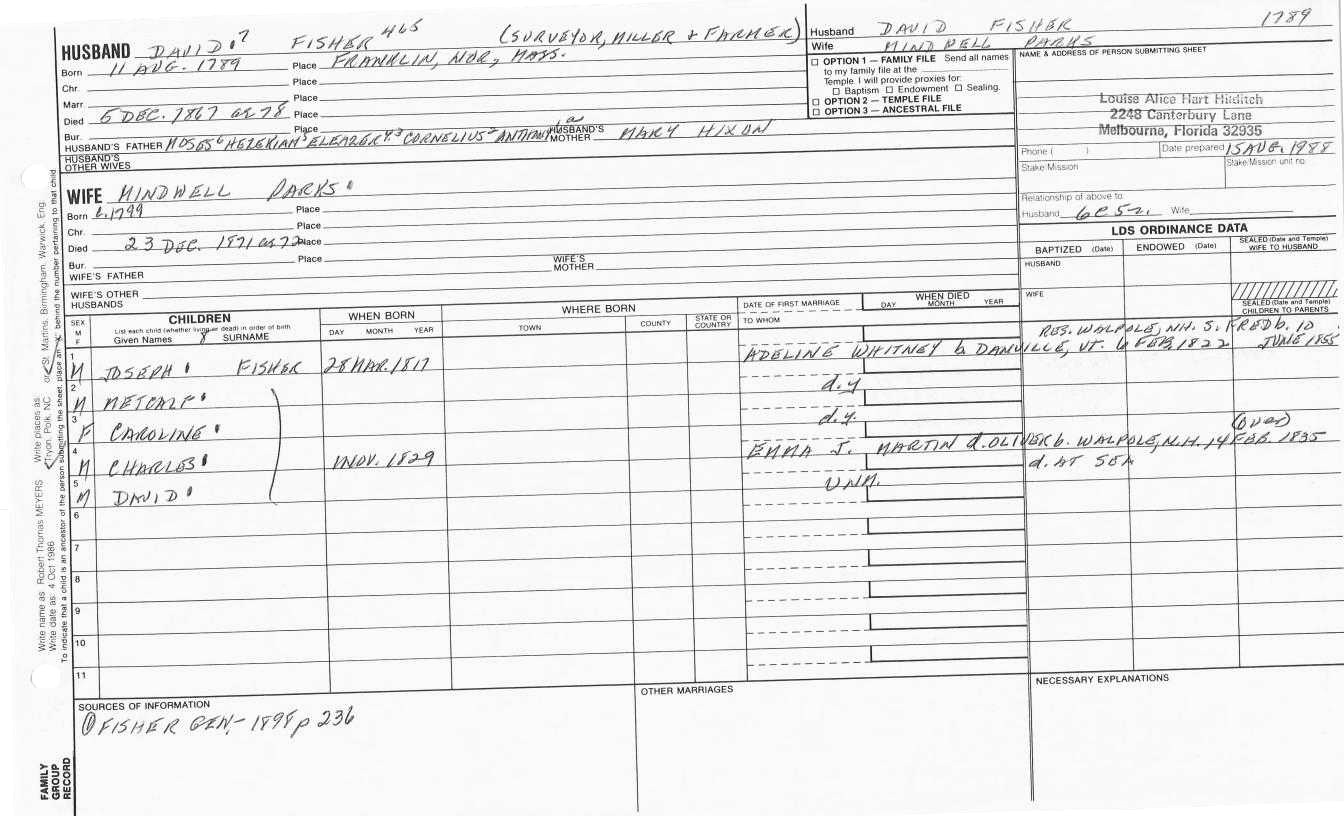 HUSBAND DAVID ⁷ FISHER 465 (SURVEYOR, MILLER & FARMER)
Born 11 AUG. 1789 Place FRANKLIN, NOR, MASS.
Chr. Place
Marr. Place
Died 5 DEC. 1867 ae 78 Place
Bur. Place
HUSBAND'S FATHER MOSES⁶ HEZEKIAH⁵ ELEAZER⁴,³ CORNELIUS² ANTHONY HUSBAND'S MOTHER MARY HIXON
HUSBAND'S OTHER WIVES
Husband DAVID FISHER 1789
Wife MINDWELL PARKS
☐ OPTION 1 — FAMILY FILE Send all names
to my family file at the
Temple. I will provide proxies for:
☐ Baptism ☐ Endowment ☐ Sealing.
☐ OPTION 2 — TEMPLE FILE
☐ OPTION 3 — ANCESTRAL FILE
NAME & ADDRESS OF PERSON SUBMITTING SHEET
Louise Alice Hart Hilditch
2248 Canterbury Lane
Melbourne, Florida 32935
Phone ( ) Date prepared 15 AUG. 1988
Stake/Mission Stake/Mission unit no.
Relationship of above to
Husband 6C5r. Wife
WIFE MINDWELL PARKS
Born c.1799 Place
Chr. Place
Died 23 DEC. 1871 ae 72 Place
Bur. Place
WIFE'S FATHER WIFE'S MOTHER
WIFE'S OTHER HUSBANDS
LDS ORDINANCE DATA
BAPTIZED (Date) ENDOWED (Date) SEALED (Date and Temple) WIFE TO HUSBAND
HUSBAND
WIFE
SEALED (Date and Temple) CHILDREN TO PARENTS
SEX M F
CHILDREN
List each child (whether living or dead) in order of birth
Given Names 8 SURNAME
WHEN BORN
DAY MONTH YEAR
WHERE BORN
TOWN COUNTY STATE OR COUNTRY
DATE OF FIRST MARRIAGE
TO WHOM
WHEN DIED
DAY MONTH YEAR
RES. WALPOLE, NH. S. FRED b. 10 JUNE 1855
1 M JOSEPH FISHER 28 MAR. 1817 ADELINE WHITNEY b. DANVILLE, VT. 6 FEB. 1822
2 M METCALF d.y
3 F CAROLINE d.y. (over)
4 M CHARLES 1 NOV. 1829 EMMA J. MARTIN d. OLIVER b. WALPOLE, N.H. 14 FEB. 1835
5 M DAVID UNM. d. AT SEA
6
7
8
9
10
11
SOURCES OF INFORMATION
① FISHER GEN.- 1898 p 236
OTHER MARRIAGES
NECESSARY EXPLANATIONS
FAMILY GROUP RECORD
Write name as Robert Thomas MEYERS Write places as Tryon, Polk, NC or St. Martins, Birmingham, Warwick, Eng.
Write date as: 4 Oct 1986
To indicate that a child is an ancestor of the person submitting the sheet, place an "X" behind the number pertaining to that child.